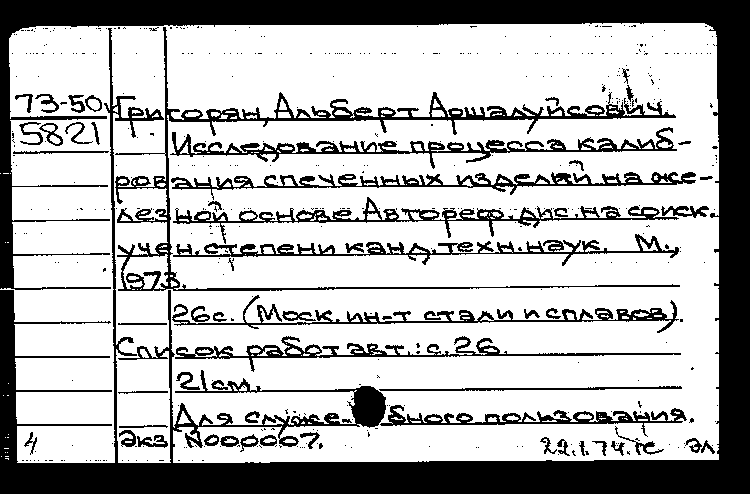 73-50 Григорян, Альберт Аршалуйсович.
5821 Исследование процесса калиб-
рования спеченных изделий на же-
лезной основе. Автореф. дис. на соиск.
учен. степени канд. техн. наук. М.,
1973.
26с. (Моск. ин-т стали и сплавов)
Список работ авт.: с. 26.
21см.
Для служебного пользования.
4 Экз. N000007.
22.1.74.